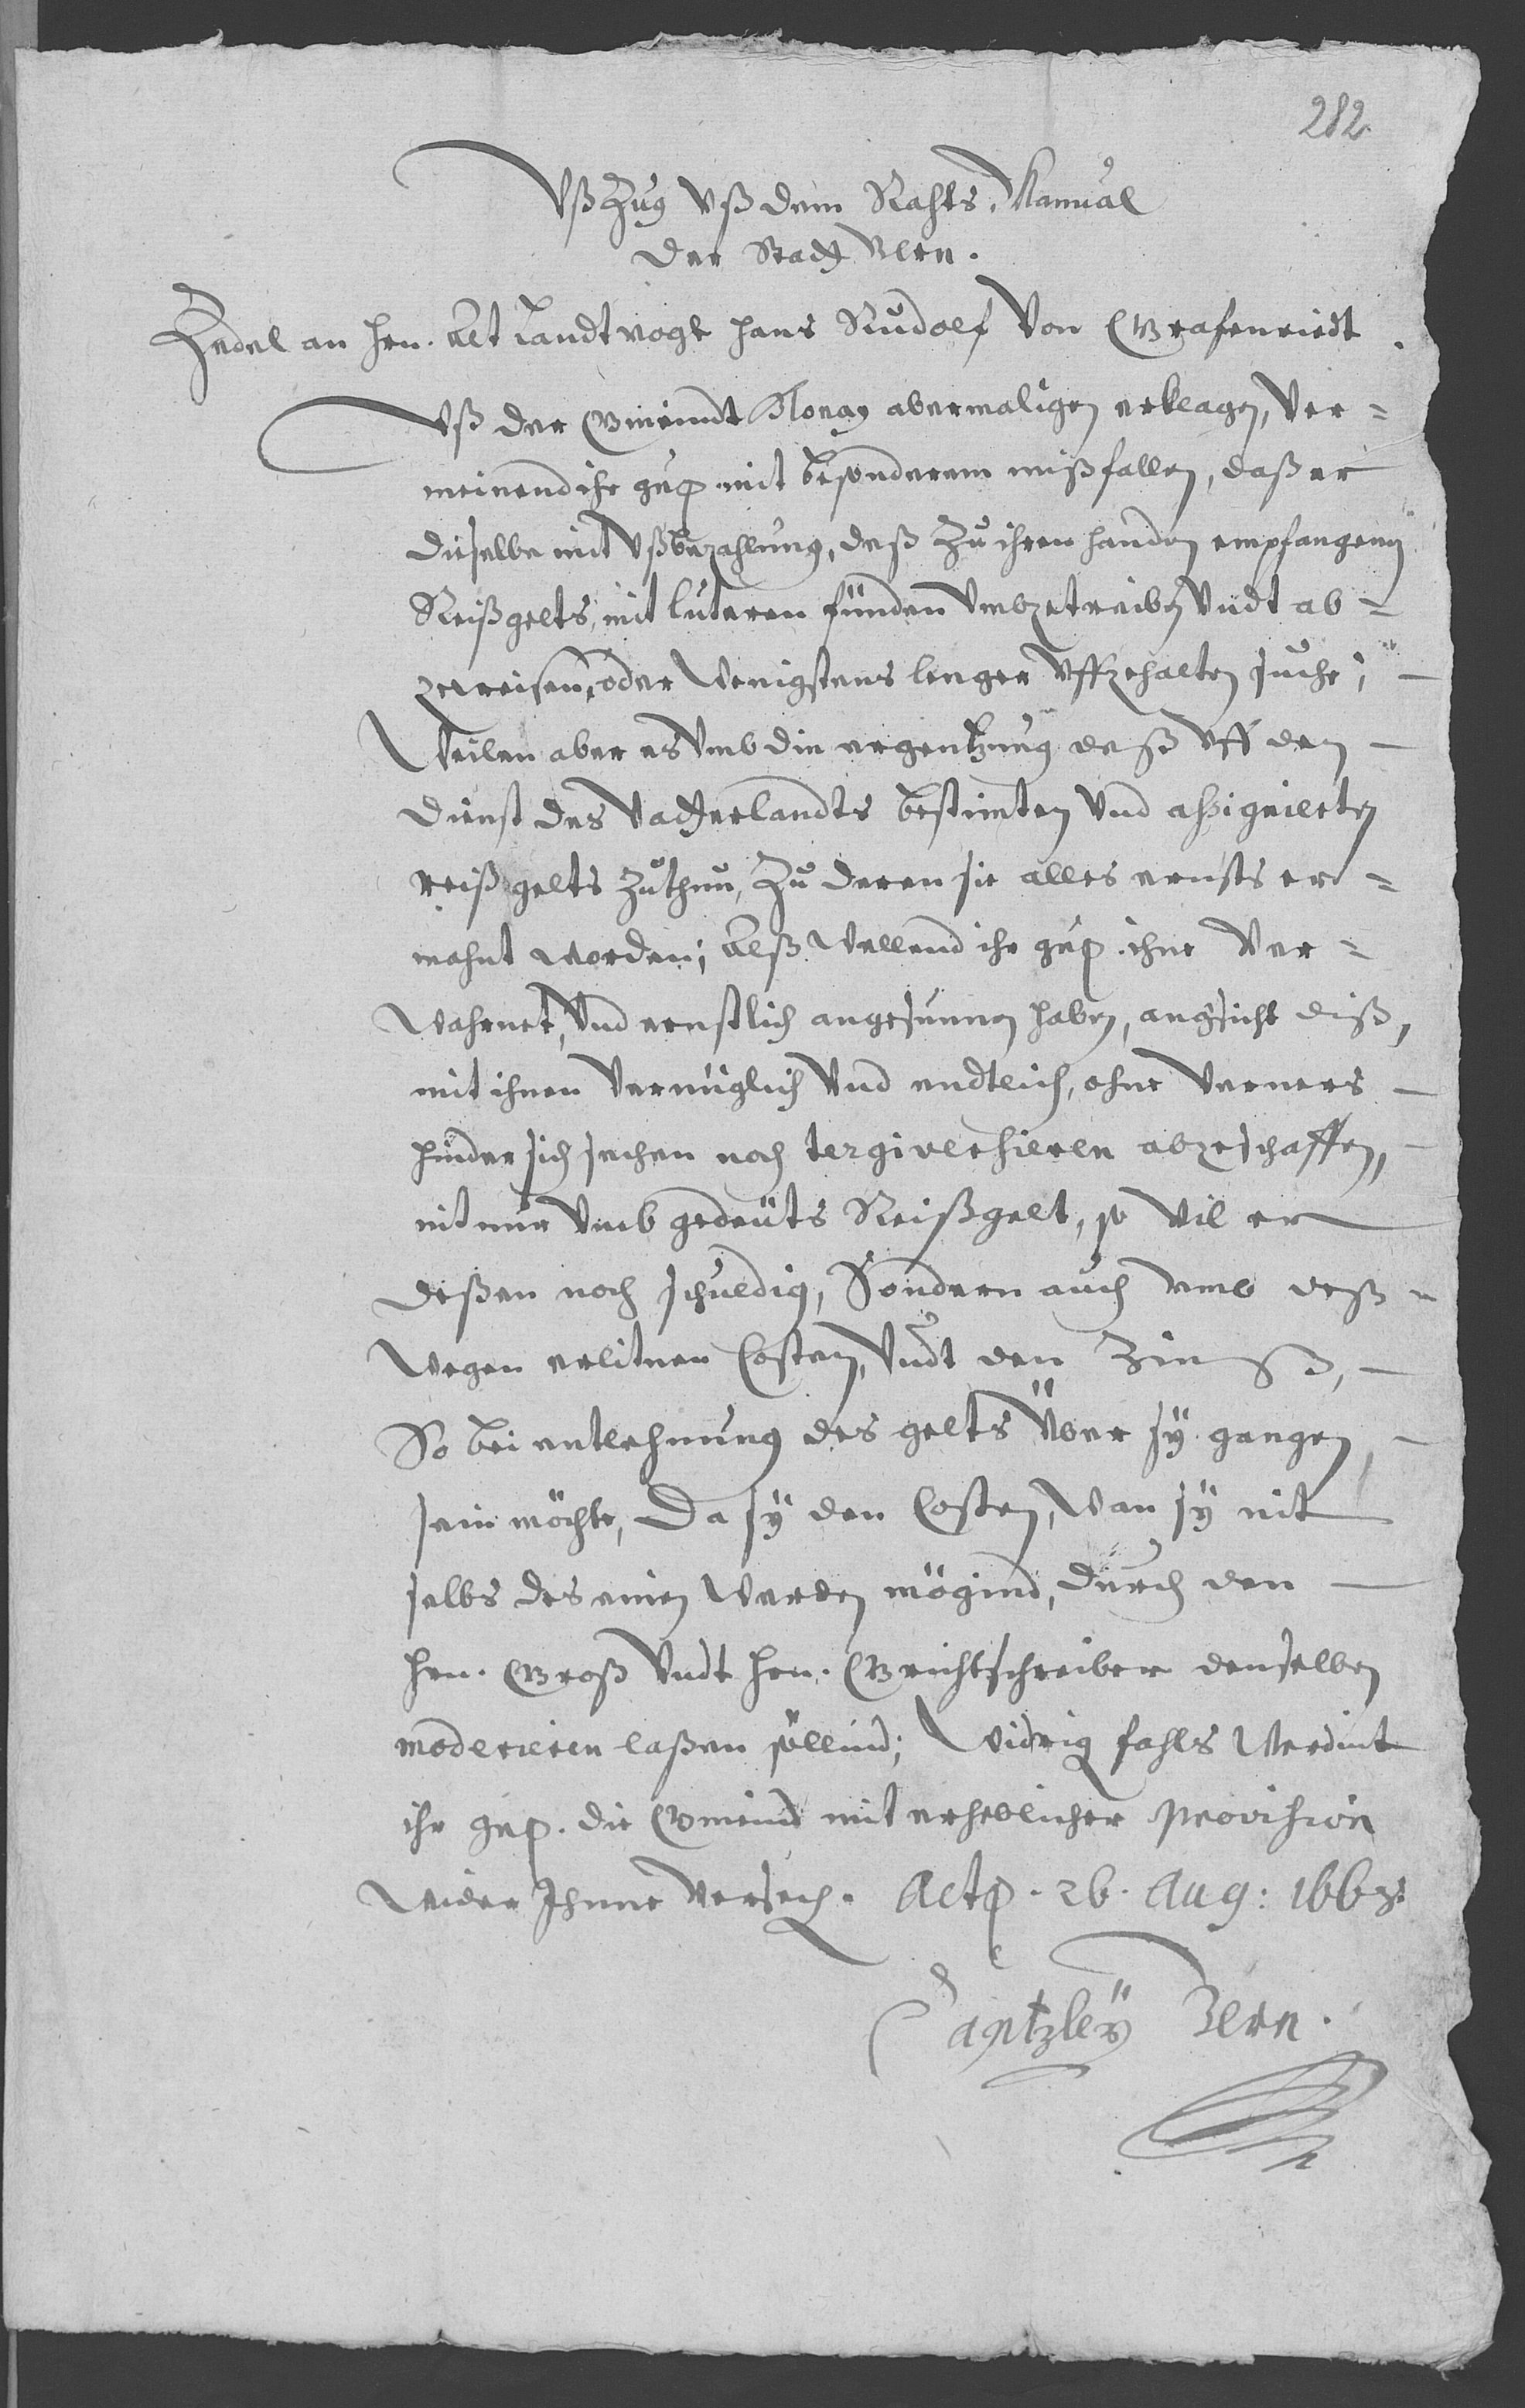 282.
Vßzug vß dem Rahts Manual
der Statt Bern.
Zedel an hrn. Alt Landtvogt hans Rudolf Von Grafenriedt.
Vß der Gmeindt Blonay abermaligen erklagen, ver=
meinend ihr gn. mit besonderem mißfallen, daß er
dieselbe mit vßbezahlung, deß zu ihren handen empfangenen
Reißgelts, mit luteren fünden vmbzetreiben vndt ab=
zeweisen, oder wenigstens lenger vffzehalten suche;
Weilen aber es vmb die ergentzung deß vff den
dienst des Vatterlandts bestimten vnd assignierten
reißgelts zuthun, zu deren sie alles ernsts er=
mahnt worden; Alß wellend ihr gn. ihne ver=
wahrnet, vnd ernstlich angesunnen haben, angsicht diß,
mit ihnen vernüglich vnd endtlich, ohne verners
hindersichsechen noch tergiversieren abzeschaffen,
nit nur vmb gedeüts Reißgelt, so vil er
deßen noch schuldig, Sondern auch vmb deß=
wegen erlitnen Costen, vndt den Zinß,
So bei entlehnung des gelts über sÿ gangen
sein möchte, Da sÿ den Costen, wan sÿ nit
selbs des einen werden mögind, durch den
hrn. Groß vndt hrn. Grichtschreiber denselben
moderieren laßen söllind; Widrig fahls werdint
ihr gn. die Gmeind mit erheblicher provision
wider Ihnne versech. Act. 26. Aug: 1663.
Cantzleÿ Bern.